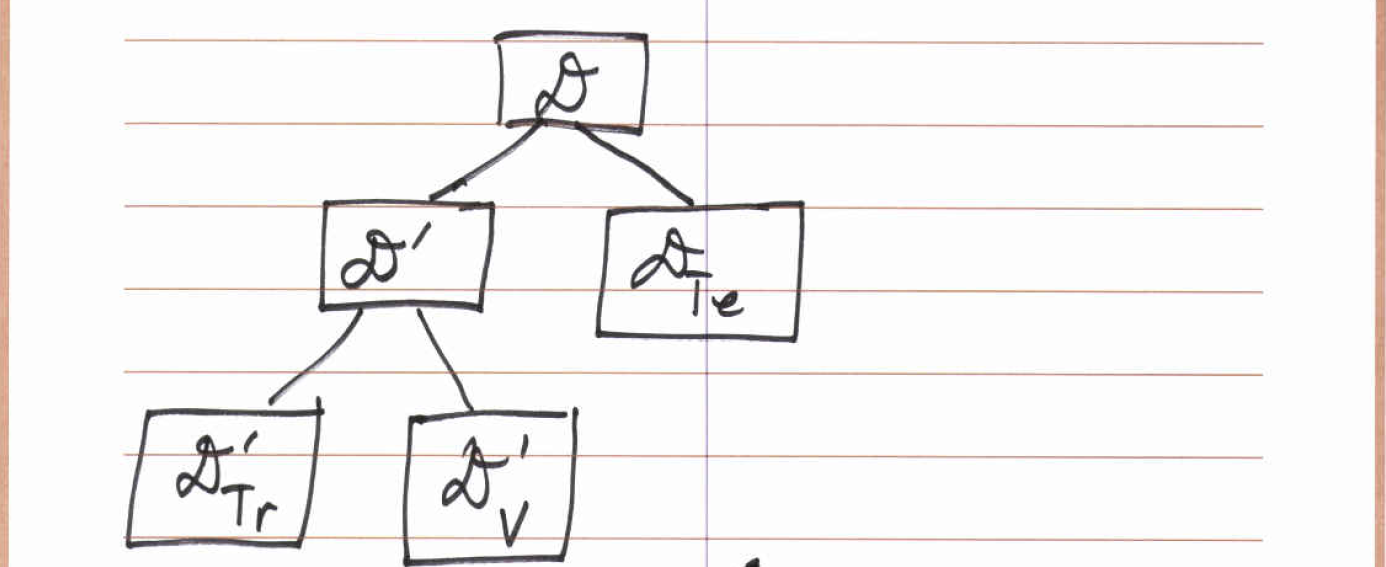 𝒟
𝒟′ 𝒟_Te
𝒟′_Tr 𝒟′_V